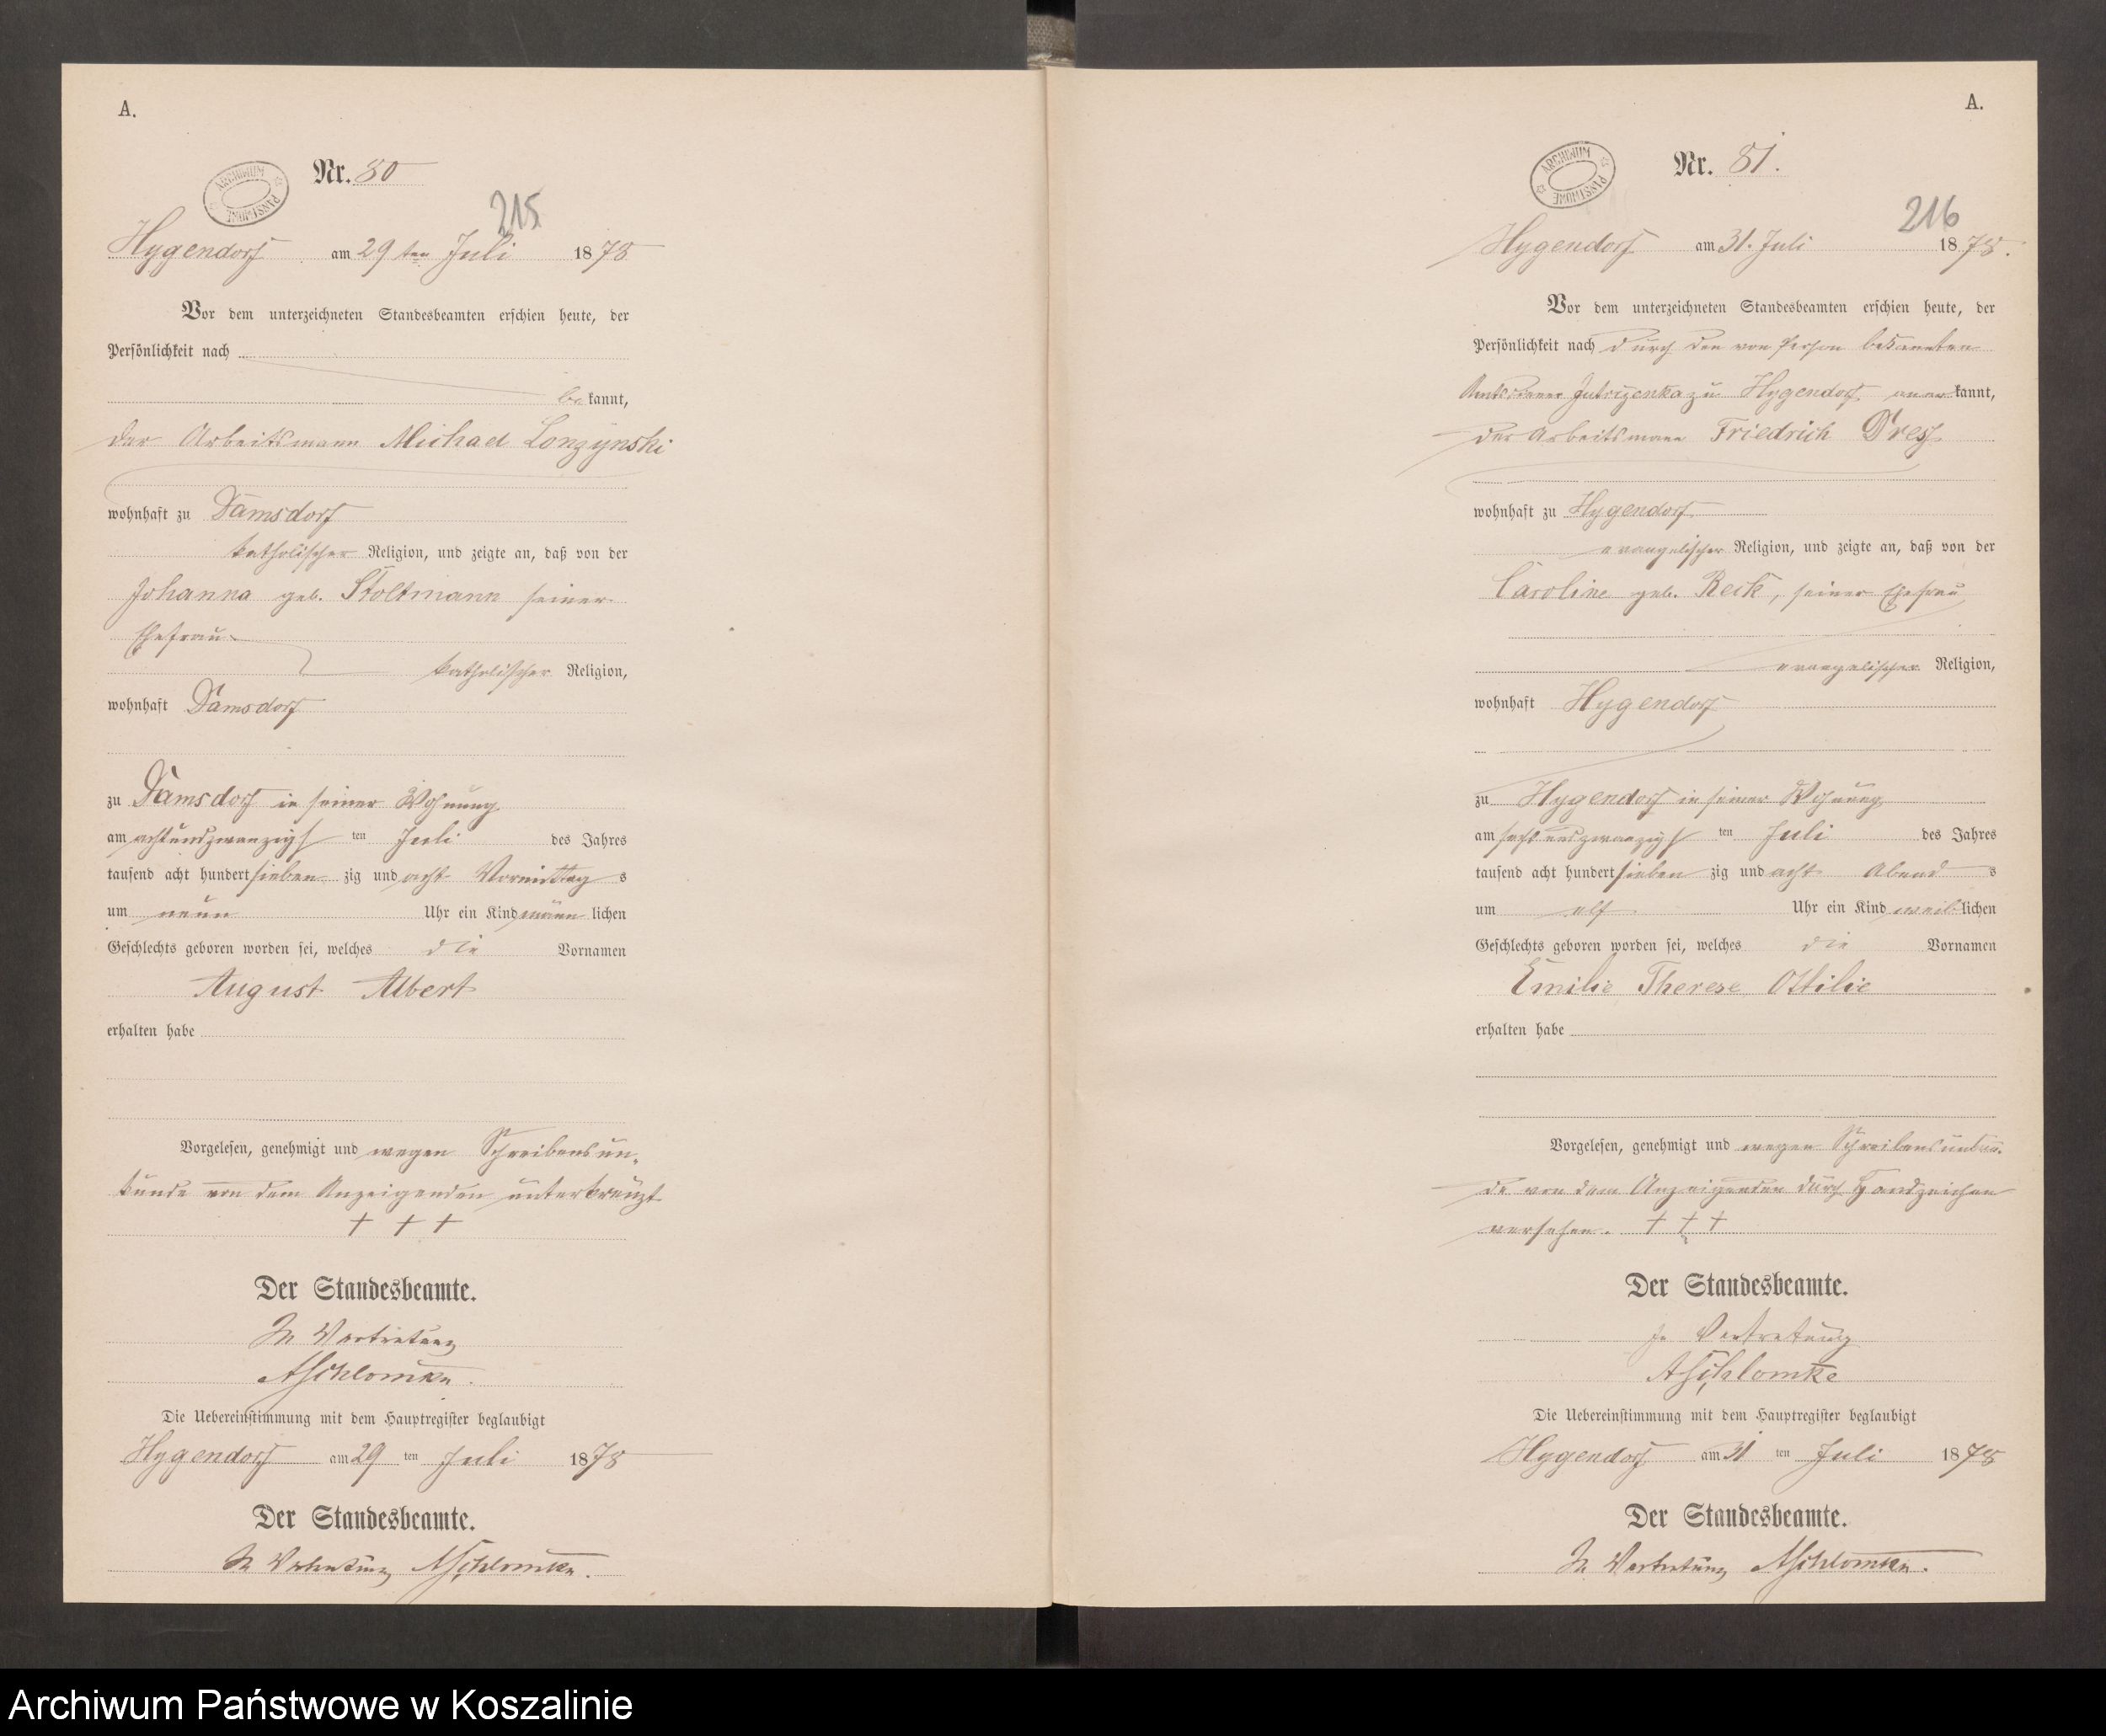 A.
ARCHIWUM PAŃSTWOWE
Nr. 80
215
Hygendorf am 29 ten Juli 1878
Vor dem unterzeichneten Standesbeamten erschien heute, der
Persönlichkeit nach
be kannt,
der Arbeitsmann Michael Lonzynski
wohnhaft zu Damsdorf
katholischer Religion, und zeigte an, daß von der
Johanna geb. Stoltmann seiner
Ehefrau
katholischer Religion,
wohnhaft Damsdorf
zu Damsdorf in seiner Wohnung
am achtundzwanzigsten Juli des Jahres
tausend acht hundert sieben zig und acht Vormittag s
um neun Uhr ein Kind männ lichen
Geschlechts geboren worden sei, welches die Vornamen
August Albert
erhalten habe
Vorgelesen, genehmigt und wegen Schreibensun-
kunde von dem Anzeigenden unterkreuzt
† † †
Der Standesbeamte.
In Vertretung
ASchlomke.
Die Uebereinstimmung mit dem Hauptregister beglaubigt
Hygendorf am 29 ten Juli 1878
Der Standesbeamte.
In Vertretung ASchlomke.
A.
ARCHIWUM PAŃSTWOWE
Nr. 81.
216
Hygendorf am 31. Juli 1878.
Vor dem unterzeichneten Standesbeamten erschien heute, der
Persönlichkeit nach durch den von Person bekannten
Amtsdiener Jutrzenka zu Hygendorf aner kannt,
der Arbeitsmann Friedrich Dres
wohnhaft zu Hygendorf
evangelischer Religion, und zeigte an, daß von der
Caroline geb. Reck, seiner Ehefrau
evangelischer Religion,
wohnhaft Hygendorf
zu Hygendorf in seiner Wohnung
am sechsundzwanzigsten Juli des Jahres
tausend acht hundert sieben zig und acht Abend s
um elf Uhr ein Kind weib lichen
Geschlechts geboren worden sei, welches die Vornamen
Emilie Therese Ottilie
erhalten habe
Vorgelesen, genehmigt und wegen Schreibensunkun-
de von dem Anzeigenden durch Handzeichen
versehen. † † †
Der Standesbeamte.
In Vertretung
ASchlomke
Die Uebereinstimmung mit dem Hauptregister beglaubigt
Hygendorf am 31 ten Juli 1878
Der Standesbeamte.
In Vertretung ASchlomke.
Archiwum Państwowe w Koszalinie